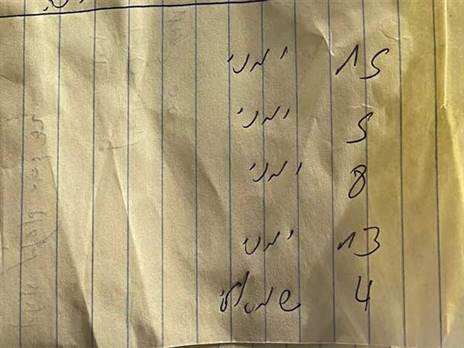 15 ימני
5 ימני
8 ימני
13 ימני
4 שמאלי